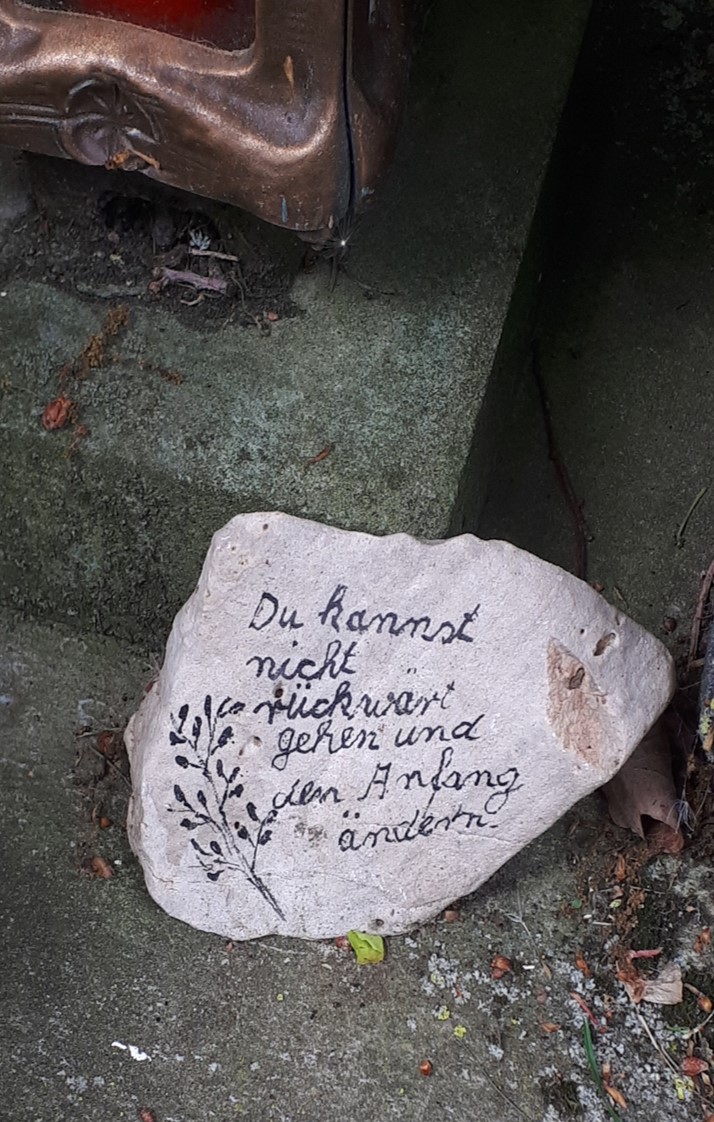 Du kannst
nicht
rückwärt
gehen und
den Anfang
ändern.